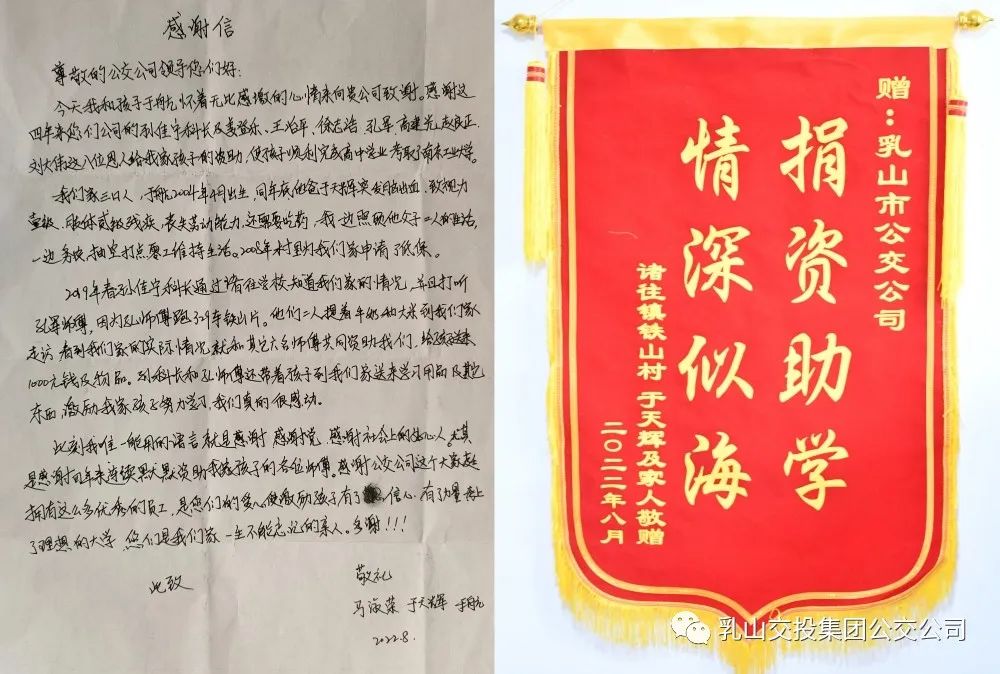 感谢信
尊敬的公交公司领导您们好:
今天我和孩子于航怀着无比感激的心情来向贵公司致谢。感谢这
四年来您们公司的孙佳宁科长及姜登乐、王治平、徐志浩、孔军、高建光、赵良正、
刘大伟这八位恩人给我家孩子的资助,使孩子顺利完成高中学业考取了南京工业大学。
我们家三口人,于航2004年4月出生,同年底他爸于天辉突发脑出血,致视力
壹级、肢体贰级残疾,丧失劳动能力,还需要吃药,我一边照顾他父子二人的生活,
一边务农,抽空打点零工维持生活。2008年村里对我们家申请了低保。
2019年春孙佳宁科长通过诸往学校知道我们家的情况,并且打听
孔军师傅,因为孔师傅跑329车铁山片。他们二人提着牛奶和大米到我们家
走访,看到我们家的实际情况就和其它六名师傅共同资助我们,给孩子送来
1000元钱及物品。孙科长和孔师傅还带着孩子到我们家送来学习用品及其它
东西,激励我家孩子努力学习,我们真的很感动。
此刻我唯一能用的语言就是感谢 感谢党 感谢社会上的好心人。尤其
是感谢四年来连续默默资助我家孩子的各位师傅。感谢公交公司这个大家庭
拥有这么多优秀的员工,是您们的爱心使激励孩子有了信心,有了力量考上
了理想的大学 您们是我们家一生不能忘记的亲人。多谢!!!
此致
敬礼
马淑荣 于天辉 于航
2022.8.
赠:乳山市公交公司
捐资助学
情深似海
诸往镇铁山村 于天辉及家人敬赠
二〇二二年八月
乳山交投集团公交公司